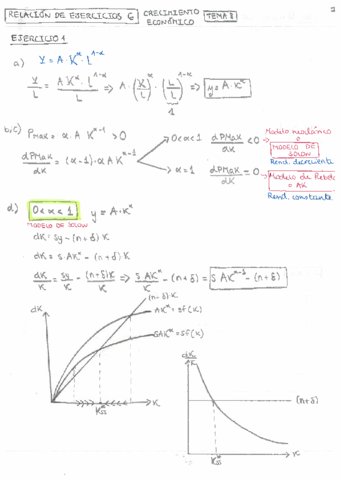 RELACIÓN DE EJERCICIOS 6 CRECIMIENTO ECONÓMICO TEMA 8
EJERCICIO 1
a) Y = A · K^α · L^(1-α)
Y/L = (A K^α · L^(1-α))/L ⟹ A · (K/L)^α · (L/L)^(1-α) ⟹ y = A · K^α
1
b/c) PMaK = α · A K^(α-1) > 0
dPMaK/dK = (α-1) · α A K^(α-2)
0<α<1 dPMaK/dK < 0 → Modelo neoclásico o MODELO DE SOLOW
Rend. decreciente
α = 1 dPMaK/dK = 0 → Modelo de Rebelo = AK
Rend. constante
d) 0<α<1 y = A·K^α
MODELO DE SOLOW
dK = sy - (n+δ)·K
dK = s·AK^α - (n+δ)·K
dK/K = sy/K - (n+δ)K/K ⟹ s AK^α/K - (n+δ) ⟹ s AK^(α-1) - (n+δ)
dK
(n+δ)·K
AK^α = f(K)
SAK^α = sf(K)
K*ss
K
dK/K
(n+δ)
K*ss
K